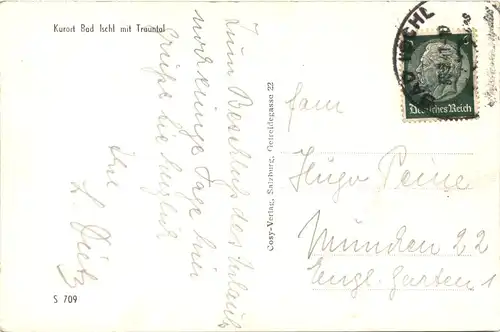 Kurort Bad Ischl mit Trauntal
Zum Beschluß des Urlaubs
noch einige Tage hier
grüße Sie herzlich
Ihre
S 709
Cosy-Verlag, Salzburg, Getreidegasse 22
BAD ISCHL
6
Deutsches Reich
Fam
Hugo Peine
München 22
Engl. Garten 1